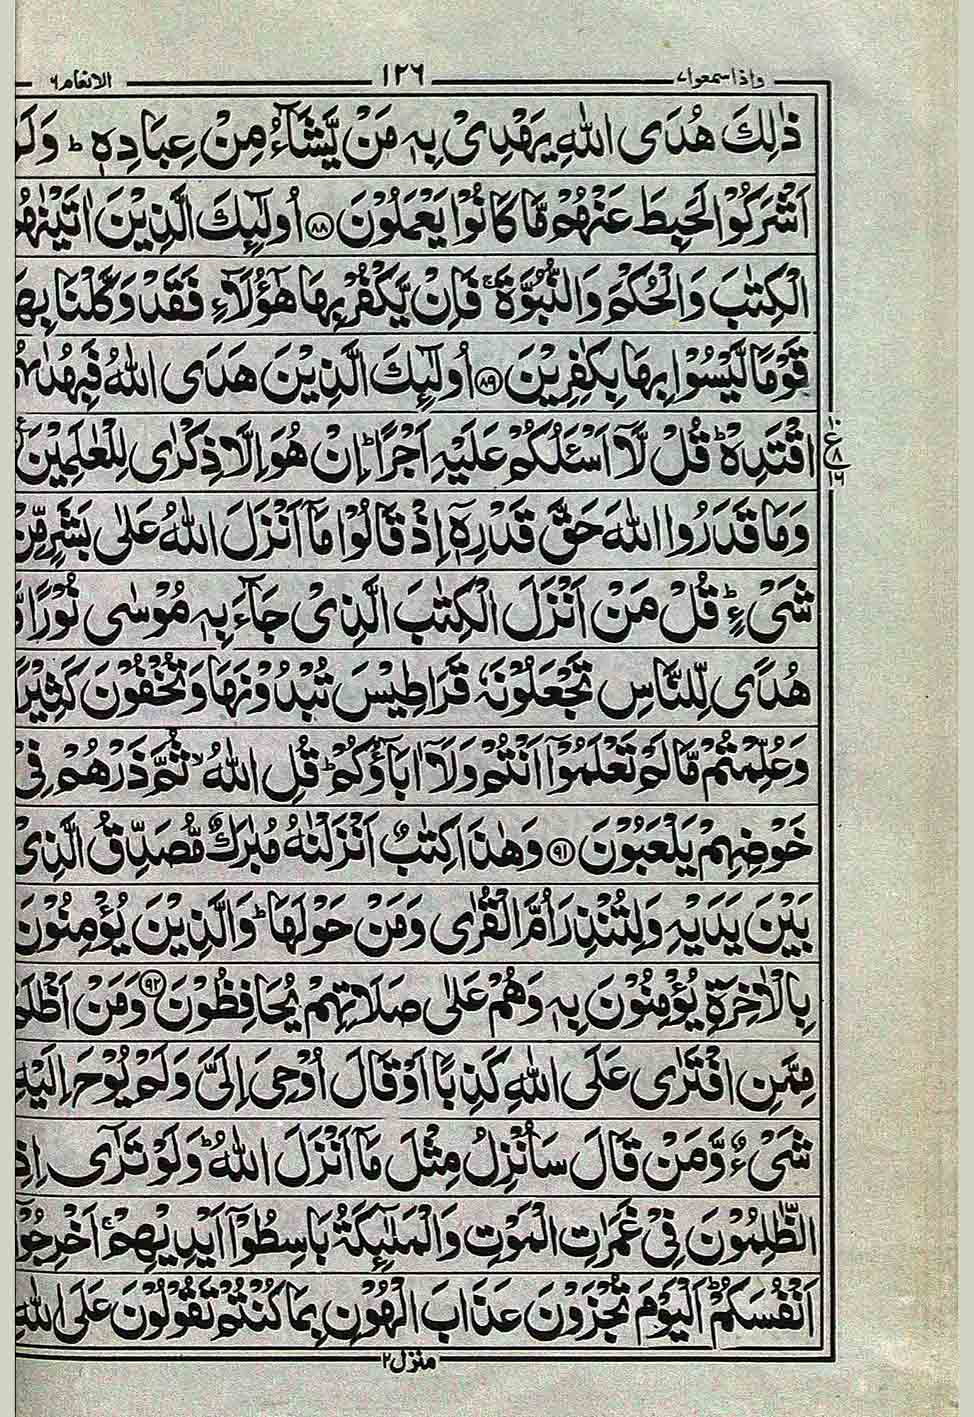 واذا سمعوا٧ ١٢٦ الانعام٦
ذٰلِكَ هُدَی اللّٰهِ یَهْدِیْ بِهٖ مَنْ یَّشَآءُ مِنْ عِبَادِهٖ ؕ وَلَوْ
اَشْرَكُوْا لَحَبِطَ عَنْهُمْ مَّا كَانُوْا یَعْمَلُوْنَ ﴿۸۸﴾ اُولٰٓئِكَ الَّذِیْنَ اٰتَیْنٰهُمُ
الْكِتٰبَ وَالْحُكْمَ وَالنُّبُوَّةَ ۚ فَاِنْ یَّكْفُرْ بِهَا هٰۤؤُلَآءِ فَقَدْ وَكَّلْنَا بِهَا
قَوْمًا لَّیْسُوْا بِهَا بِكٰفِرِیْنَ ﴿۸۹﴾ اُولٰٓئِكَ الَّذِیْنَ هَدَی اللّٰهُ فَبِهُدٰىهُمُ
اقْتَدِهْ ؕ قُلْ لَّاۤ اَسْـَٔلُكُمْ عَلَیْهِ اَجْرًا ؕ اِنْ هُوَ اِلَّا ذِكْرٰی لِلْعٰلَمِیْنَ
ع ٨ ١٦
وَمَا قَدَرُوا اللّٰهَ حَقَّ قَدْرِهٖۤ اِذْ قَالُوْا مَاۤ اَنْزَلَ اللّٰهُ عَلٰی بَشَرٍ مِّنْ
شَیْءٍ ؕ قُلْ مَنْ اَنْزَلَ الْكِتٰبَ الَّذِیْ جَآءَ بِهٖ مُوْسٰی نُوْرًا وَّ
هُدًی لِّلنَّاسِ تَجْعَلُوْنَهٗ قَرَاطِیْسَ تُبْدُوْنَهَا وَتُخْفُوْنَ كَثِیْرًا
وَعُلِّمْتُمْ مَّا لَمْ تَعْلَمُوْۤا اَنْتُمْ وَلَاۤ اٰبَآؤُكُمْ ؕ قُلِ اللّٰهُ ۙ ثُمَّ ذَرْهُمْ فِیْ
خَوْضِهِمْ یَلْعَبُوْنَ ﴿۹۱﴾ وَهٰذَا كِتٰبٌ اَنْزَلْنٰهُ مُبٰرَكٌ مُّصَدِّقُ الَّذِیْ
بَیْنَ یَدَیْهِ وَلِتُنْذِرَ اُمَّ الْقُرٰی وَمَنْ حَوْلَهَا ؕ وَالَّذِیْنَ یُؤْمِنُوْنَ
بِالْاٰخِرَةِ یُؤْمِنُوْنَ بِهٖ وَهُمْ عَلٰی صَلَاتِهِمْ یُحَافِظُوْنَ ﴿۹۲﴾ وَمَنْ اَظْلَمُ
مِمَّنِ افْتَرٰی عَلَی اللّٰهِ كَذِبًا اَوْ قَالَ اُوْحِیَ اِلَیَّ وَلَمْ یُوْحَ اِلَیْهِ
شَیْءٌ وَّمَنْ قَالَ سَاُنْزِلُ مِثْلَ مَاۤ اَنْزَلَ اللّٰهُ ؕ وَلَوْ تَرٰۤی اِذِ
الظّٰلِمُوْنَ فِیْ غَمَرٰتِ الْمَوْتِ وَالْمَلٰٓئِكَةُ بَاسِطُوْۤا اَیْدِیْهِمْ ۚ اَخْرِجُوْۤا
اَنْفُسَكُمْ ؕ اَلْیَوْمَ تُجْزَوْنَ عَذَابَ الْهُوْنِ بِمَا كُنْتُمْ تَقُوْلُوْنَ عَلَی اللّٰهِ
منزل٢